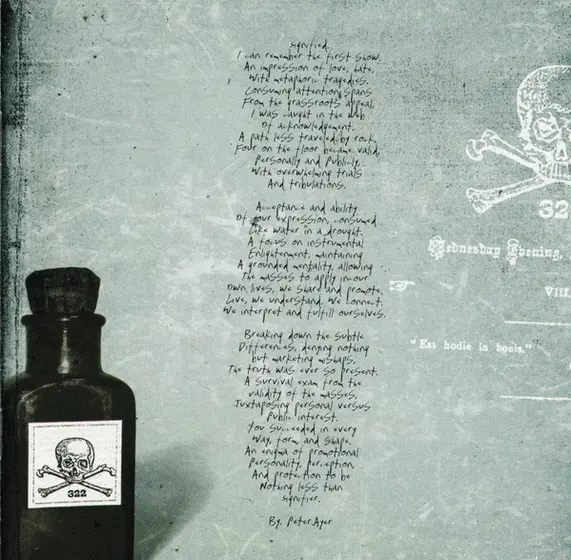 signified.
I can remember the first show.
An impression of love, hate,
With metaphoric tragedies.
Consuming attention spans
From the grassroots appeal,
I was caught in the web
Of acknowledgement.
A path less traveled by rock,
Four on the floor became valid.
Personally and publicly,
With overwhelming trials
And tribulations.
Acceptance and ability
Of your expression, consumed
Like water in a drought.
A focus on instrumental
Enlightenment, maintaining
A grounded mentality, allowing
The masses to apply in our
Own lives, we share and promote,
Live, we understand. We connect.
We interpret and fulfill ourselves.
Breaking down the subtle
Differences, denying nothing
but marketing mishaps,
The truth was ever so present.
A survival exam from the
validity of the masses,
Juxtaposing personal versus
Public interest.
You succeeded in every
Way, form, and shape,
An enigma of promotional
Personality, perception,
And protection to be
Nothing less than
signifier.
By, Peter Ayer
322
Wednesday Evening,
VIII
"Est hodie in bonis."
322